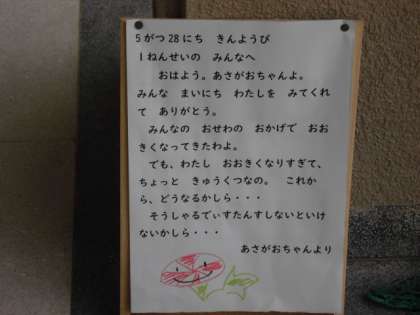 5がつ28にち　きんようび
1ねんせいの　みんなへ
　おはよう。あさがおちゃんよ。
みんな　まいにち　わたしを　みてくれ
て　ありがとう。
　みんなの　おせわの　おかげで　おお
きくなってきたわよ。
　でも、わたし　おおきくなりすぎて、
ちょっと　きゅうくつなの。　これか
ら、どうなるかしら・・・
　そうしゃるでぃすたんすしないといけ
ないかしら・・・
あさがおちゃんより